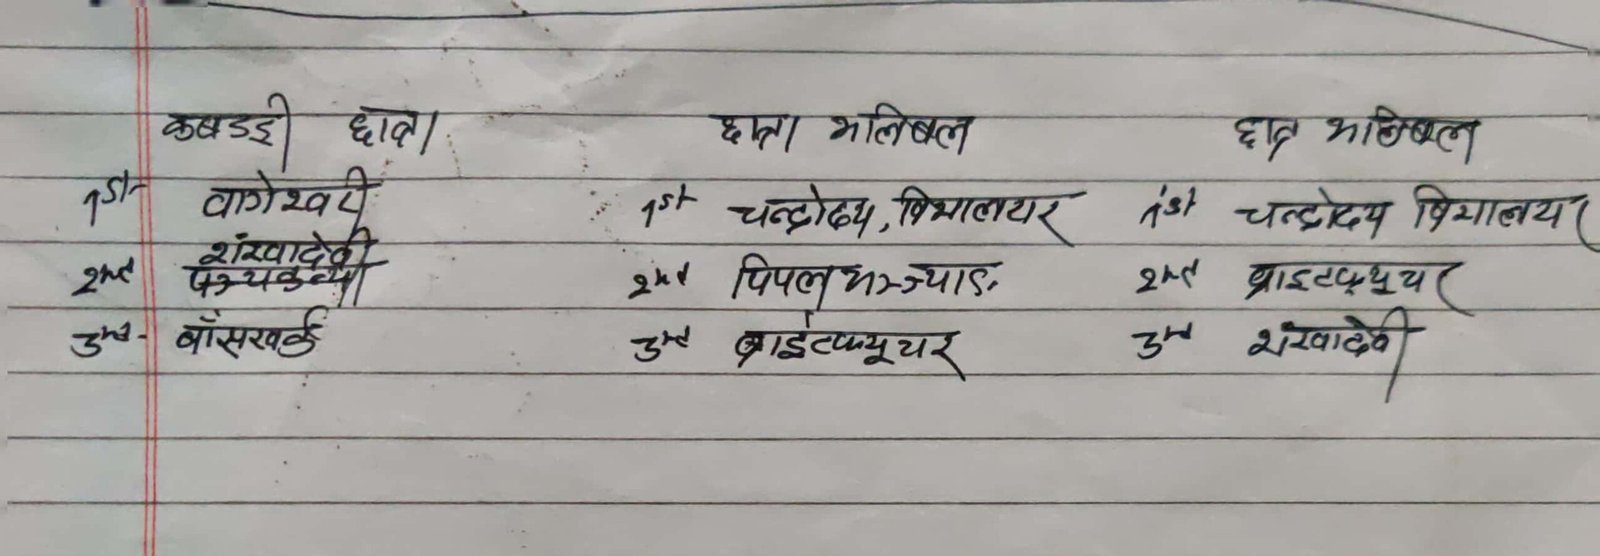 कबडडी छात्रा छात्रा भलिबल छात्र भलिबल
1st वागेश्वरी 1st चन्द्रोदय, विद्यालयर 1st चन्द्रोदय विद्यालयर
शंखादेवी
2nd पञ्चकन्या 2nd पिपल भञ्ज्याङ 2nd ब्राइटफ्यूचर
3rd - बाँसखर्क 3rd ब्राईटफ्यूचर 3rd शंखादेवी